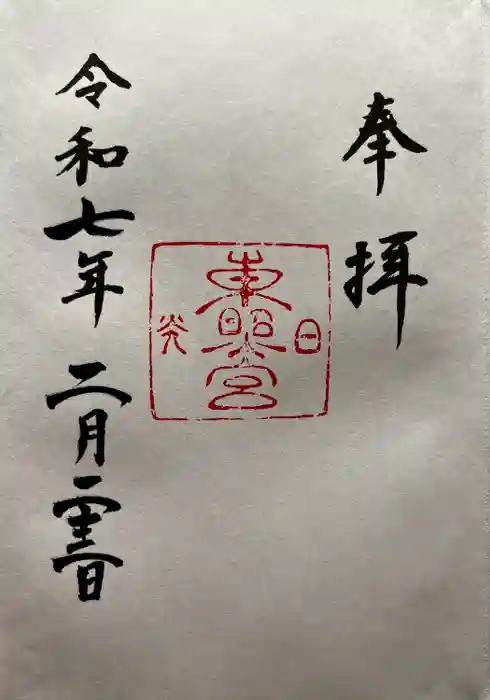 奉拝
東照宮
日光
令和七年 二月 日